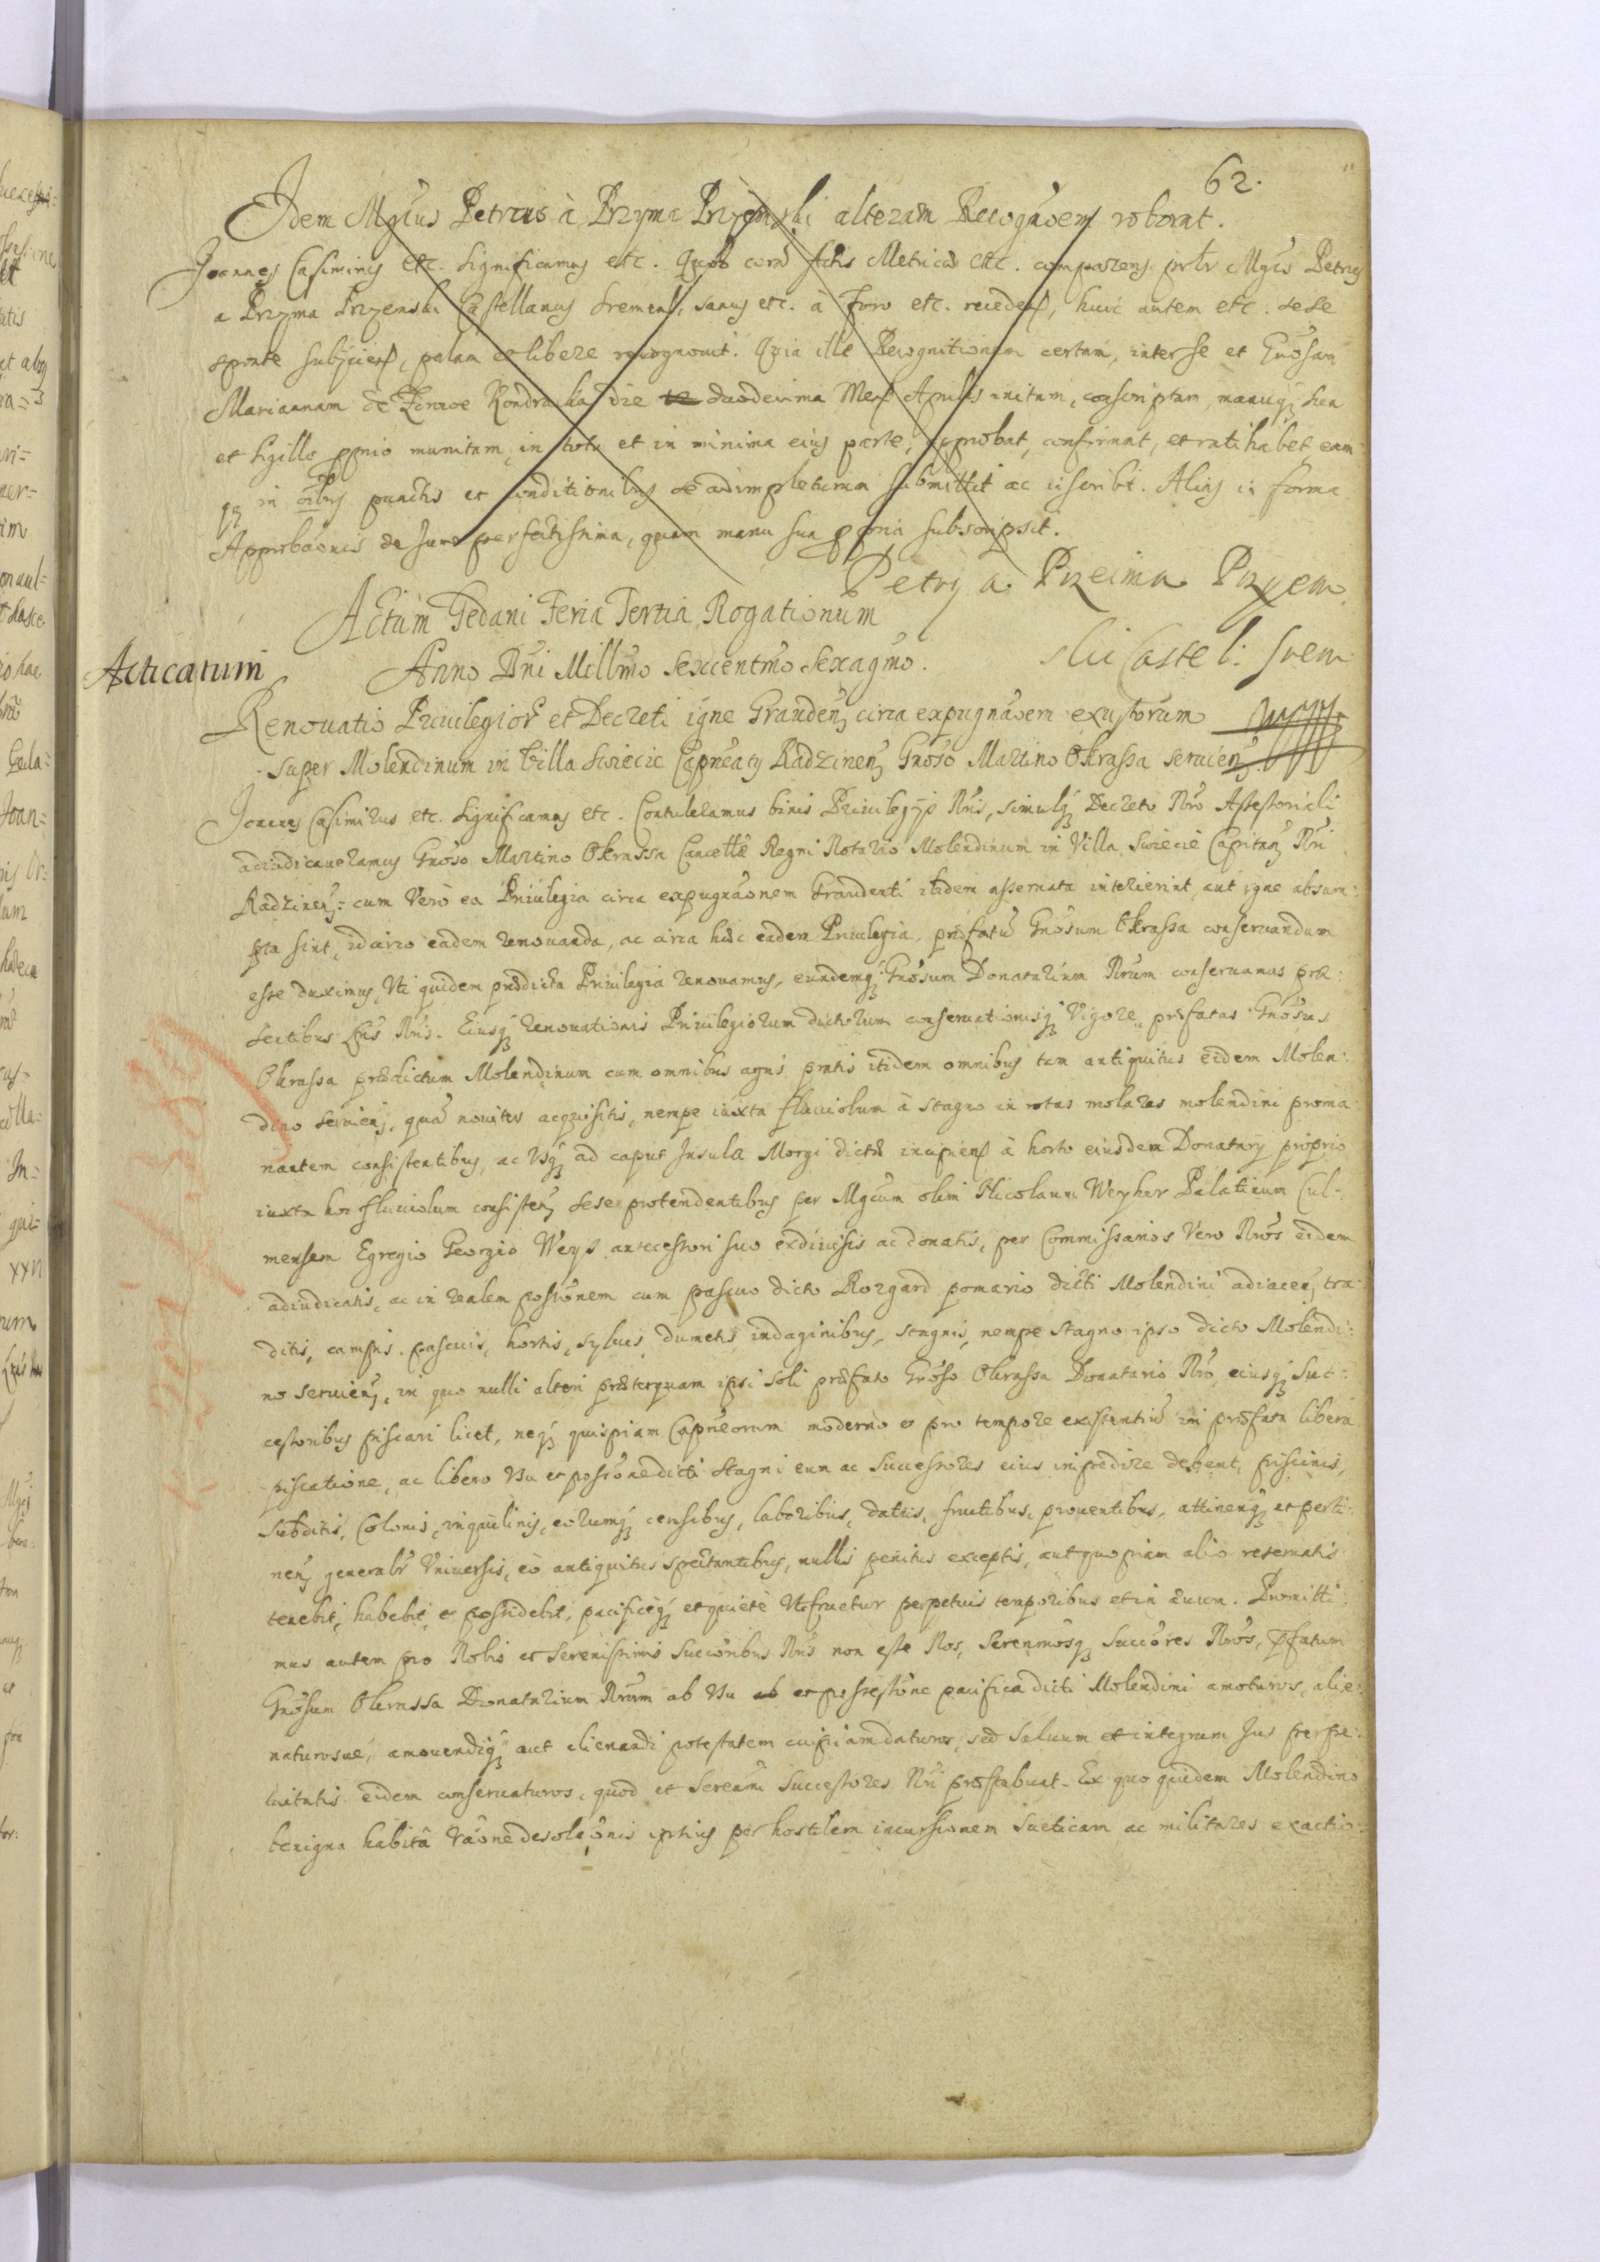 62.
Idem Mgcus Petrus à Przyma Przyemski alteram Recognaoem roborat.
Joannes Casimirus etc. Significamus etc. Quod coram Actis Metrices etc. comparens prlr Mgcus Petrus
a Przyma Przyemski Castellanus Sremens, sanus etc. à Foro etc. recedens, huic autem etc. sese
sponte subijciens, palam et libere recognouit. Quia ille Recognitionem certam, inter se et Gnosam
Mariannam de die duodecima Mens Aprilis initam, conscriptam, manuq sua
et Sigillo pprio munitam, in toto et in minima eius parte, approbat, confirmat, et ratihabet eam
qz in oibus punctis et Conditionibus se adimpleturum submittit ac inscribt. Alias in forma
Approbaonis de Jure perfectissima, quam manu sua ppria subscripsit.
Petrÿ a Przeima Przyem
ski Castel: Srem
Actum Gedani Feria Tertia Rogationum
Acticatum Anno Dni Millmo Sexcentmo Sexagmo.
Renouatio Priuilegior et Decreti igne Graudenz circa expugnaoem exustorum
super Molendinum in Villa Swiecie Capneaty Radzinenz Gnoso Martino Okrassa seruienz
Joannes Casimirus etc. Significamus etc. Contuleramus binis Priuilegijs Nris, simulq Decreto Nro Assessoriali
adiudicaueramus Gnoso Martino Okrassa Cancellae Regni Notario Molendinum in Villa Swiecie Capitnz Nri
Radzinenz: cum Verò ea Priuilegia circa expugnaonem Graudenti ibidem asseruata interierint aut igne absum:
pta sint, idcirco eadem renouanda, ac circa haec eadem Priuilegia praefatu Gnosum Okrassa conseruandum
esse duximus, Vti quidem praedicta Priuilegia renouamus, eundemq Gnosum Donatarium Nrum conseruamus prae:
sentibus Lris Nris. Eiusq renouationis Priuilegiorum dictorum conseruationisq Vigore, praefatus Gnosus
Okrassa praedictum Molendinum cum omnibus agris pratis itidem omnibus tam antiquitus eidem Molen:
dino seruienz, qua nouiter acquisitis, nempe iuxta fluuiolum à stagno in rotas molares molendini proma
nantem consistentibus, ac Vsq ad caput Insula Morgi dictae incipiens à horto eiusdem Donatarij proprio
iuxta hoc fluuiolum consistenz sese protendentibus per Mgcum olim Nicolaum Weyher Palatinum Cul:
mensem Egregio Georgio Weys antecessori suo exdiuisis ac donatis, per Commissarios Vero Nros eidem
adiudicatis, ac in realem possionem cum pascuo dicto Rozgard pomerio dicti Molendini adiacenz tra
ditis, campis, pascuis, hortis, sylvis, dumetis, indaginibus, stagnis, nempe stagno ipso dicto Molendi:
no seruienz, in quo nulli alteri praeterquam ipsi soli praefato Gnoso Okrassa Donatario Nro, eiusq Suc:
cessoribus piscari licet, neq quispiam Capneorum moderno et pro tempore existentiu in praefata libera
piscatione, ac libero Vsu et possione dicti Stagni eum ac Successores eius impedire debent, piscinis,
subditis, Colonis, inquilinis, eorumq censibus, laboribus, datiis, fructibus, prouentibus, attinenq et perti
nenz generalr Vniuersis, eò antiquitus spectantibus, nullis penitus exceptis, aut quopiam alio reseruatis
tenebit, habebit, et possidebit, pacificeq et quietè Vtifruetur perpetuis temporibus et in aeuum. Promitti:
mus autem pro Nobis et Serenissimis Succoribus Nris non esse Nos, Serenmosq Succores Nros, pfatum
Gnosum Okrassa Donatarium Nrum ab Vsu et possessione pacifica dicti Molendini amoturos, alie:
naturosue, amouendiq aut alienandi potestatem cuipiam daturos, sed saluum et integrum Jus perpe:
tuitatis eidem conseruaturos, quod et Serenmi Successores Nri praestabunt. Ex quo quidem Molendino
benigna habitâ Raone desolaonis ipsius per hostilem incursionem Sueticam ac militares exactio: